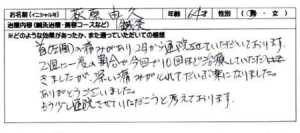 お名前(イニシャル可) 萩原由久 年齢 64才 性別 (男・女)
治療内容(鍼灸治療・美容コースなど) 鍼灸
※どのような効果があったか、また通っていただいての感想
首(左側)の痛みがあり2月から通院させていただいております。
2週に一度の割合で今回で10回ほど治療していただ
きましたが、深い痛みがとれてだいぶ楽になりました。
ありがとうございました。
もう少し通院させていただこうと考えております。